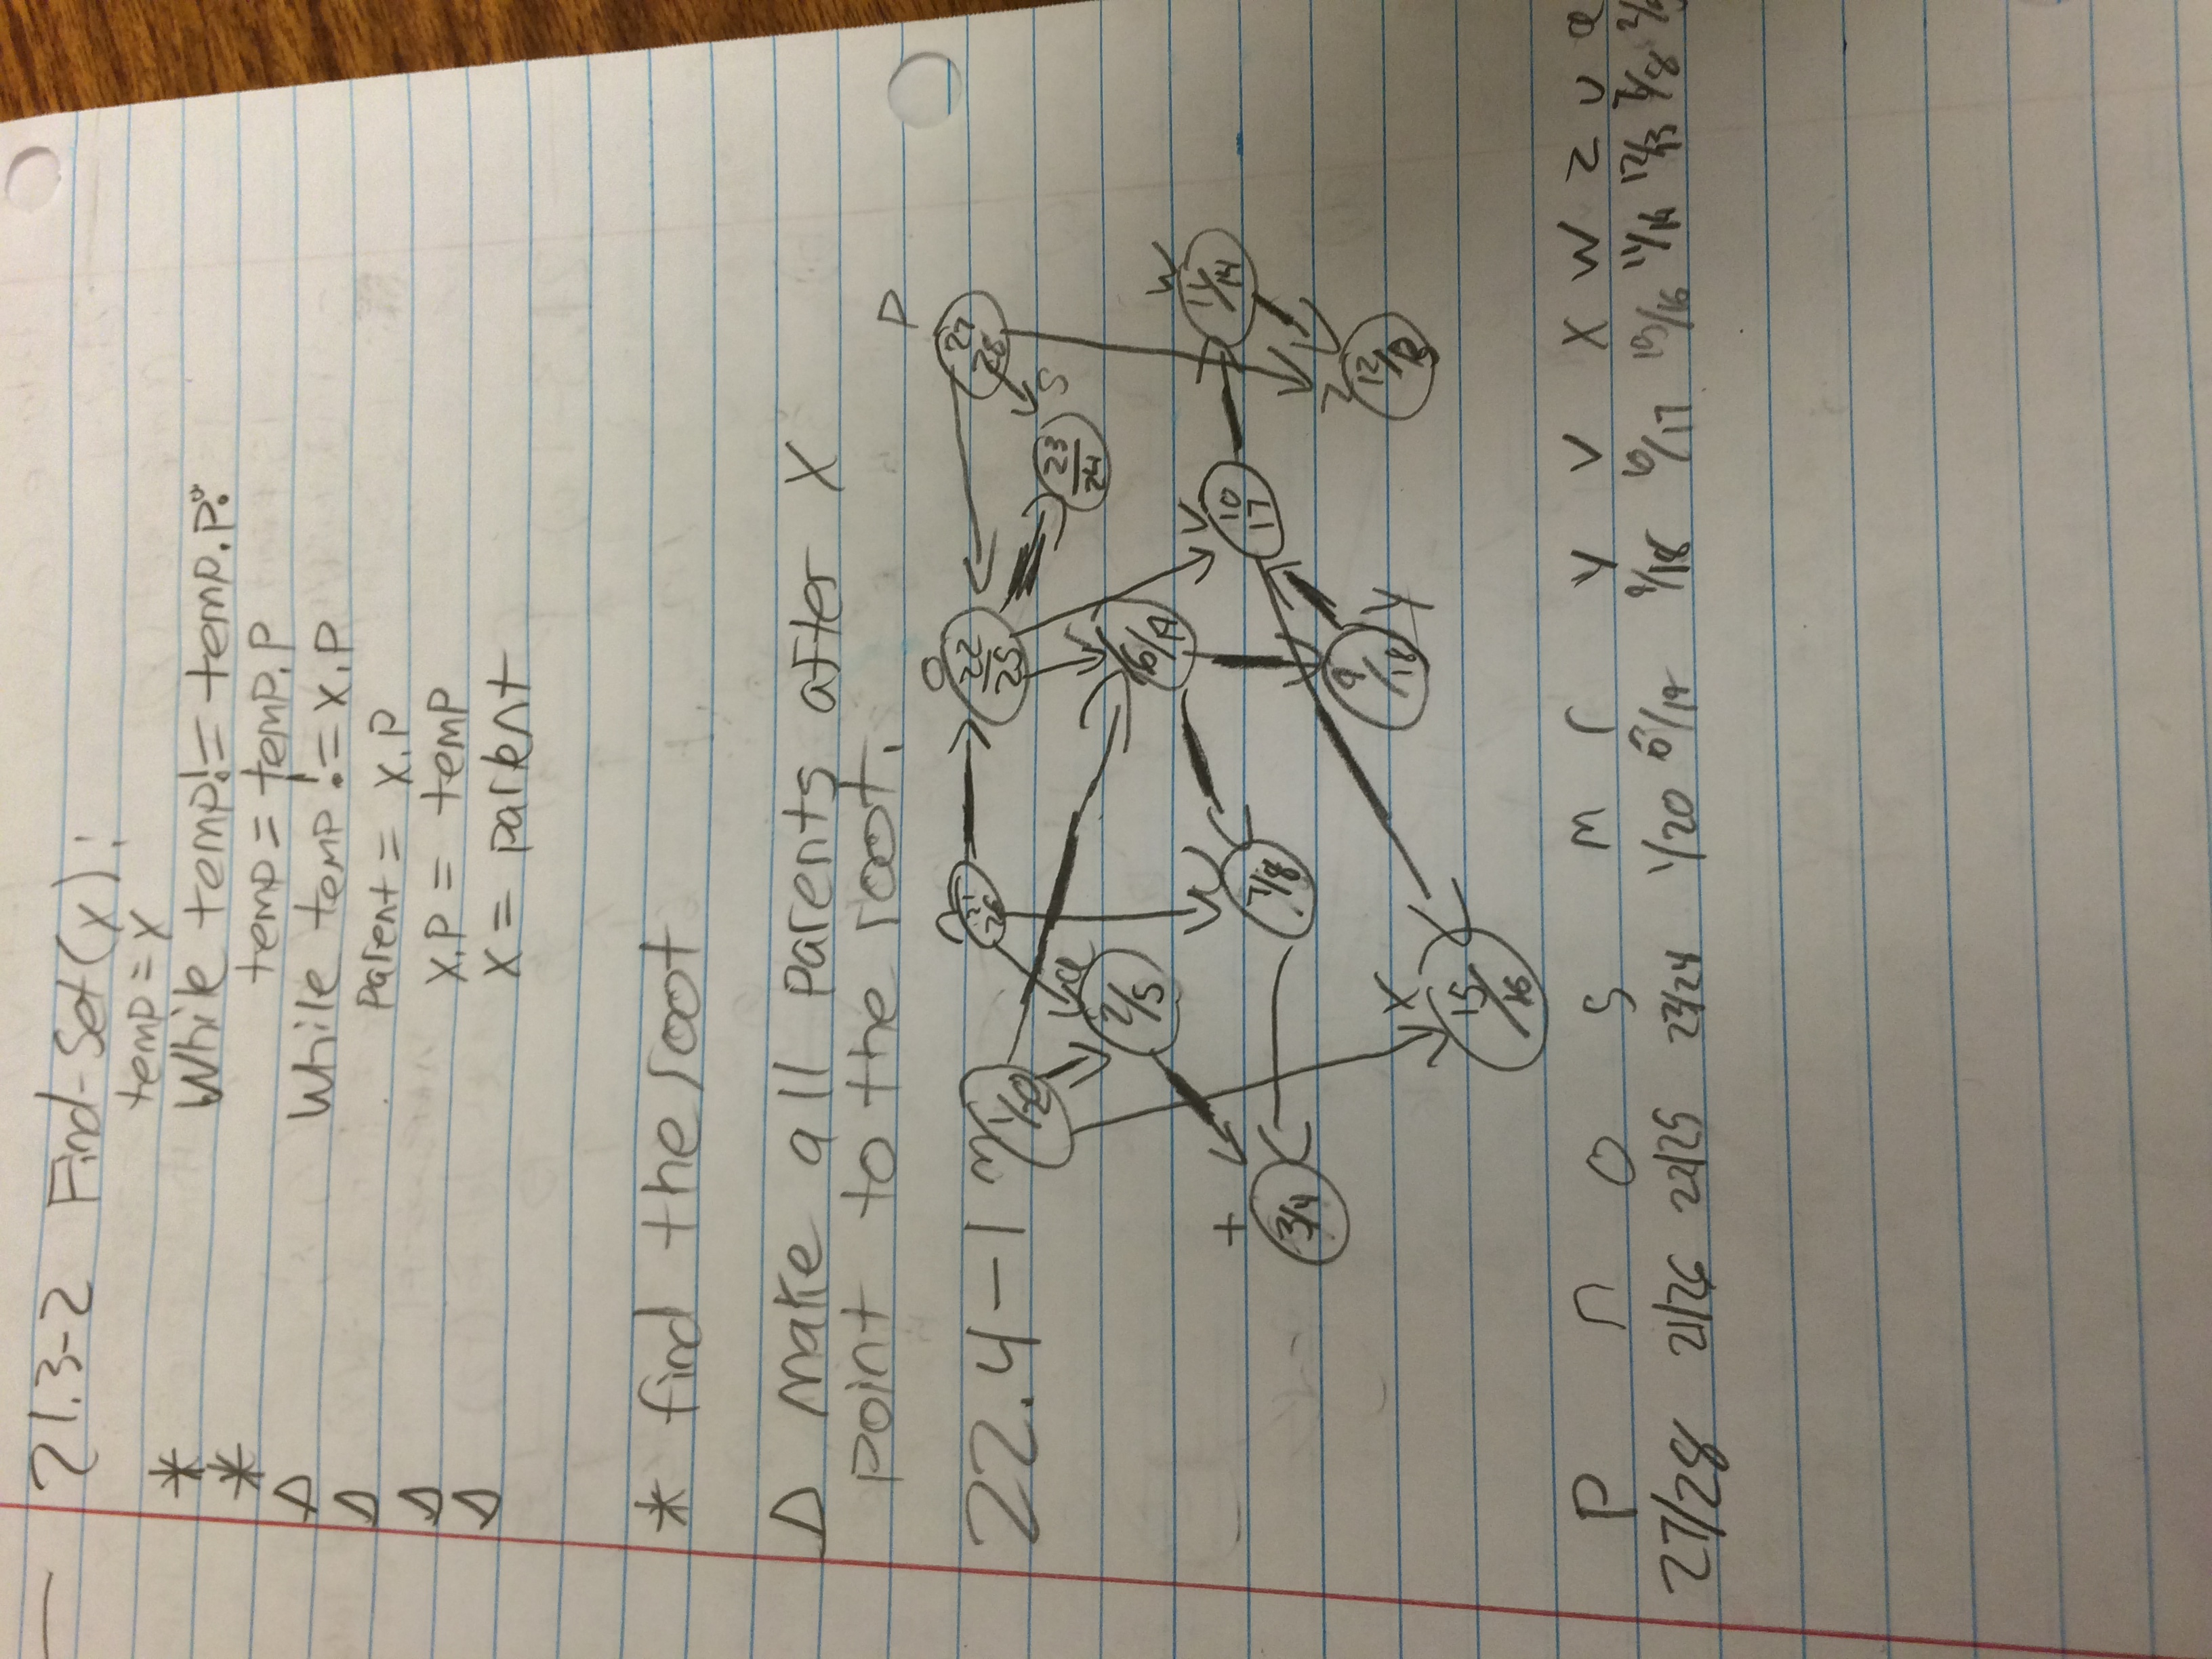 21.3-2 Find-Set(x):
temp = x
* While temp != temp.P:
* temp = temp.P
Δ While temp != x.P
Δ Parent = x.P
Δ x.P = temp
Δ x = parent
* find the root
Δ Make all parents after x
point to the root.
P
22.4-1 m 1/20 n 21/26 o 22/25 27/28
s 23/24
q 2/5 r 6/19
t 3/4 u 7/8 v 10/17 w 11/14
x 15/16 y 9/18 z 12/13
P n o s m r y v x w z u q
27/28 21/26 22/25 23/24 1/20 6/19 9/18 10/17 15/16 11/14 12/13 7/8